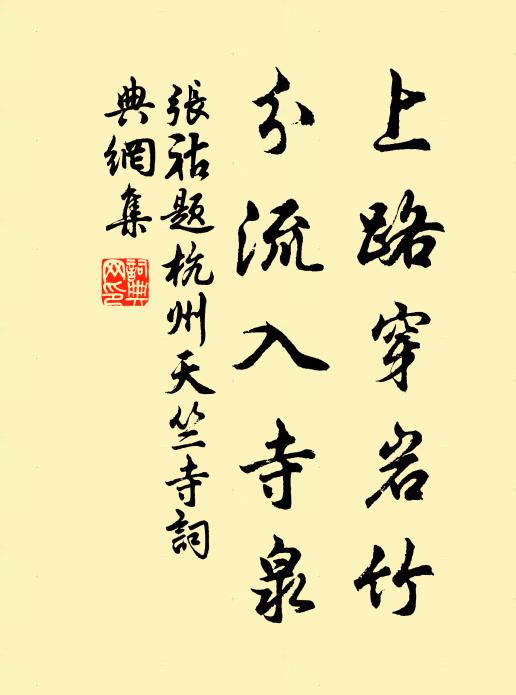 上路穿岩竹
分流入寺泉
張祜題杭州天竺寺詞
典網集
詞典网印